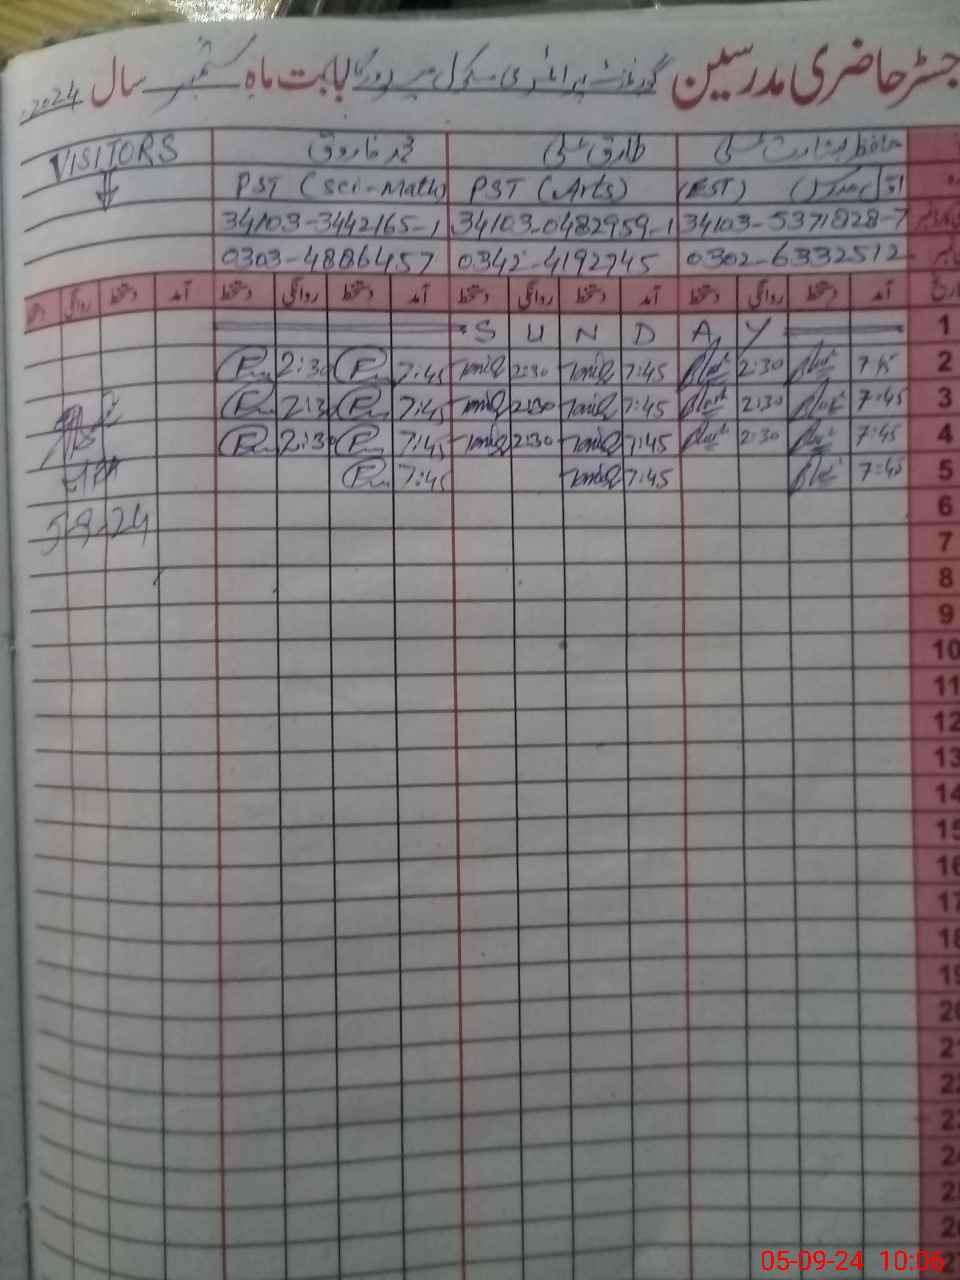 رجسٹر حاضری مدرسین گورنمنٹ پرائمری سکول بابت ماہ ستمبر سال 2024
حافظ بشارت علی طارق علی محمد فاروق VISITORS
(EST) PST (Arts) PST (Sci-Math)
34103-5371828-7 34103-0482959-1 34103-3442165-1
0302-6332512 0342-4192745 0303-4886457
تاریخ آمد دستخط روانگی دستخط آمد دستخط روانگی دستخط آمد دستخط روانگی دستخط آمد دستخط روانگی
1 SUNDAY
2 7:45 2:30 7:45 2:30 7:45 2:30
3 7:45 2:30 7:45 2:30 7:45 2:30
4 7:45 2:30 7:45 2:30 7:45 2:30
5 7:45 7:45 7:45
6 5-9-24
7
8
9
10
11
12
13
14
15
16
17
18
19
20
21
22
23
24
25
26
27
05-09-24 10:06